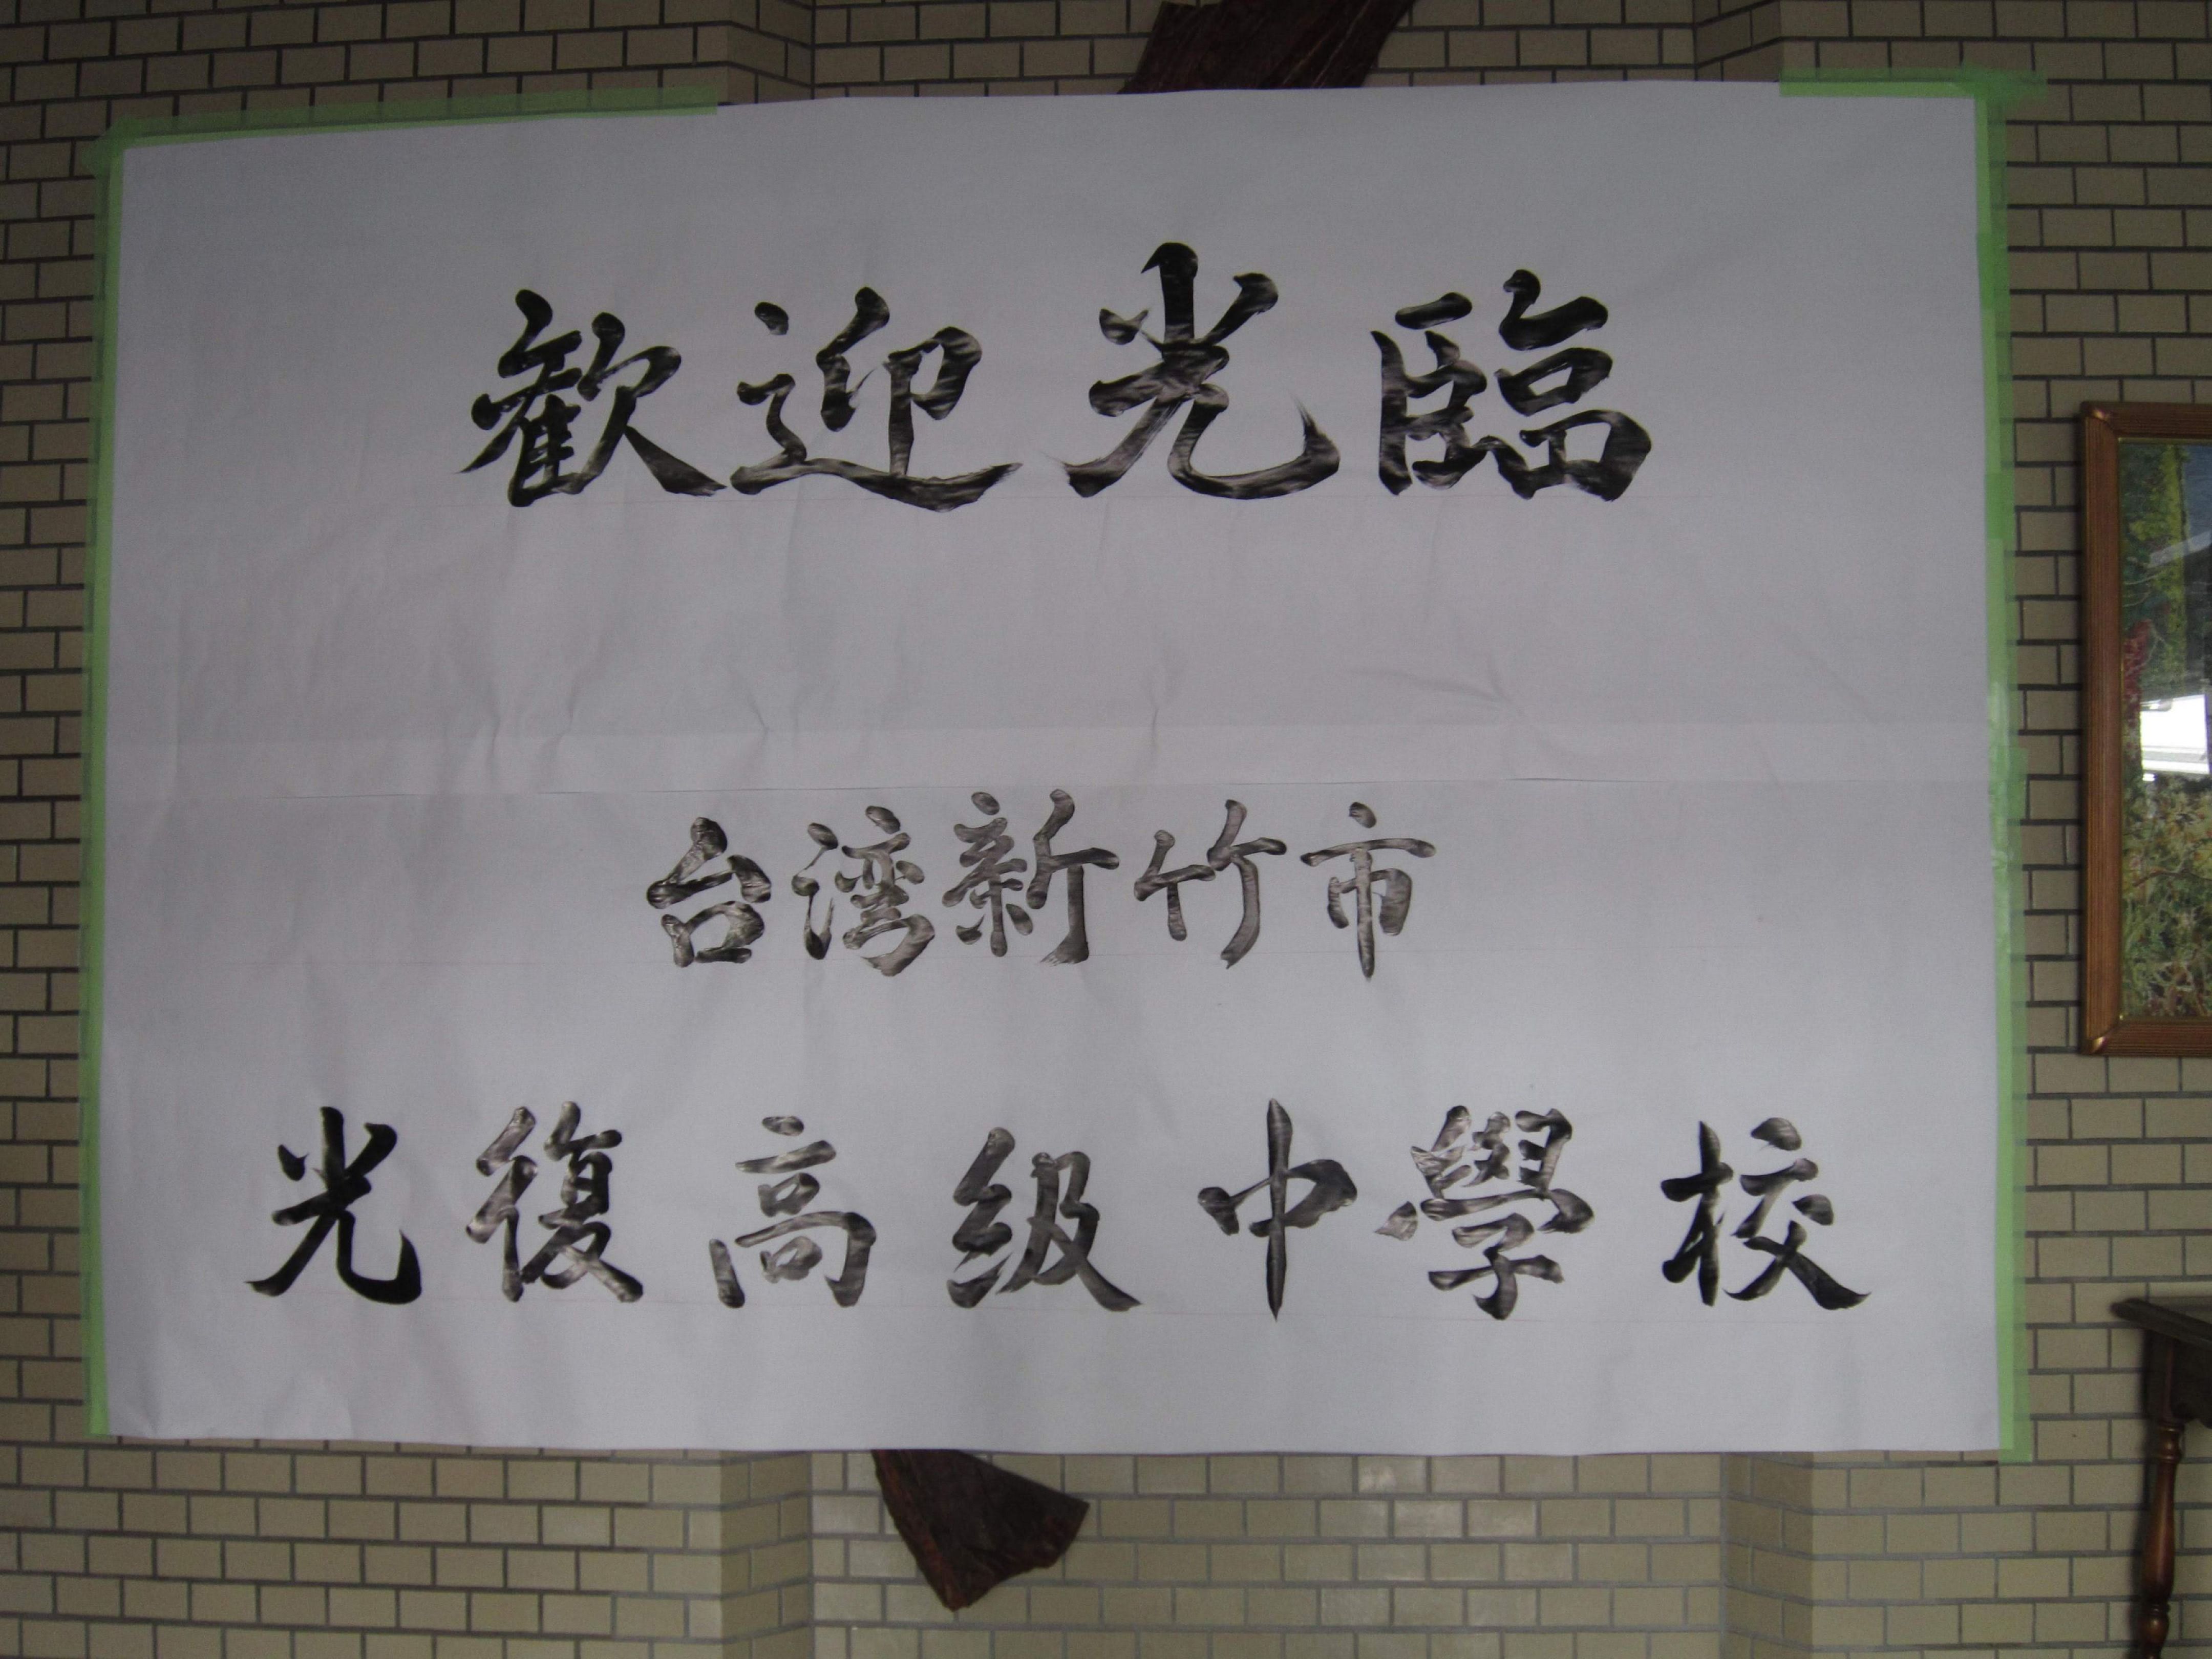 歓迎光臨
台湾新竹市
光復高級中學校